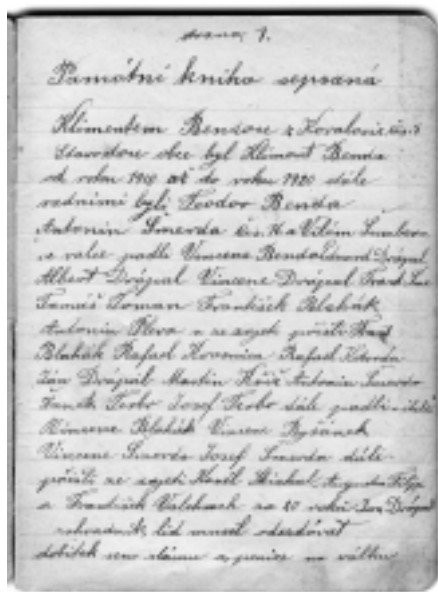 strana 1.
Památní kniha sepsaná
Klimentem Bendou z Kovalovic čís. 8
Starostou obce byl Kliment Benda
od roku 1919 až do roku 1920 dále
radními byli Teodor Benda
Antonín Smerda čís. 14 a Vilém
ve válce padli Vincenc Benda Eduard Drápal
Albert Drápal Vincenc Drápal
Tomáš Toman František Blahák
Antonín Pleva a ze zajetí přišli
Blahák Rafael Rafael
Ján Drápal Martin Kříž Antonín Smerda
Josef dále padli
Vincenc Blahák Vincenc Ryšánek
Vincenc Smerda Josef Smerda dále
přišli ze zajetí Karel Filip
a František za 20 roků Drápal
zahradník, lid musel odevzdávat
dobytek seno slámu a peníze na válku